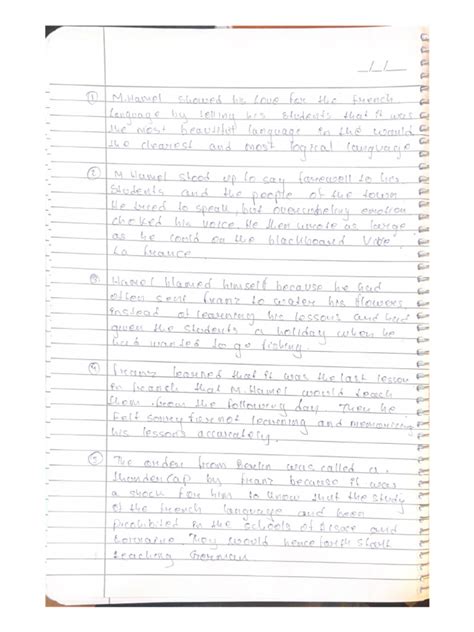 _/_/_
① M.Hamel showed his love for the french
language by telling his students that it was
the most beautiful language in the would
the clearest and most logical language
② M Hamel stood up to say farewell to his
Students and the people of the town
He tried to speak, but overcomeing emotion
choked his voice. He then wrote as large
as he could on the blackboard Vive
La france.
③ Hamel blamed himself because he had
often sent franz to water his flowers
instead of learning his lessons and had
given the students a holiday when he
had wanted to go fishing.
④ franz learned that it was the last lesson
in french that M.Hamel would teach
them from the following day. Then he
felt sorry for not learning and memorizing
his lessons accurately.
⑤ The order from Berlin was called a
thunderclap by franz because it was
a shock for him to know that the study
of the french language and been
prohibited in the schools of Alsace and
Lorraine. They would henceforth start
teaching German